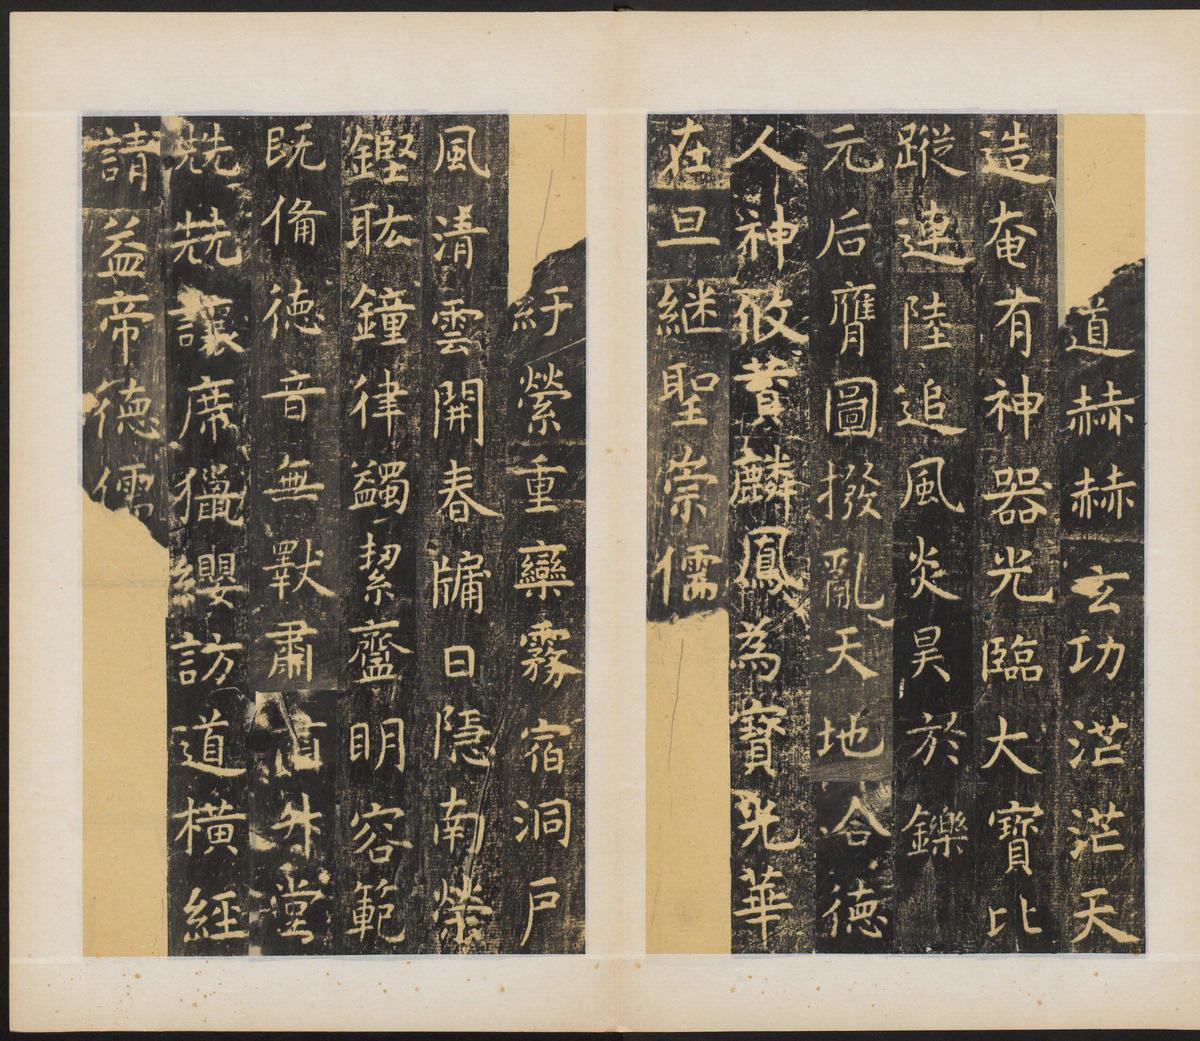 道赫赫玄功茫茫天
造奄有神器光臨大寶比
蹤連陸追風炎昊於鑠
元后膺圖撥亂天地合德
人神攸賛麟鳳為寶光華
在旦継聖崇儒
紆縈重欒霧宿洞戶
風清雲開春牖日隱南榮
鏗耾鐘律蠲絜齋明容範
既備德音無斁肅 升堂
兟兟讓席獵纓訪道橫經
請益帝德儒